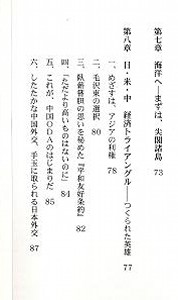 第七章　海洋へ——まずは、尖閣諸島　73
第八章　日・米・中　経済トライアングル——つくられた英雄　77
一、めざすは、アジアの利権　78
二、毛沢東の選択　80
三、臥薪嘗胆の思いを秘めた『平和友好条約』　82
四、「ただより高いものはないのに」　84
五、これが、中国ODAのはじまりだ　85
六、したたかな中国外交、手玉に取られる日本外交　87